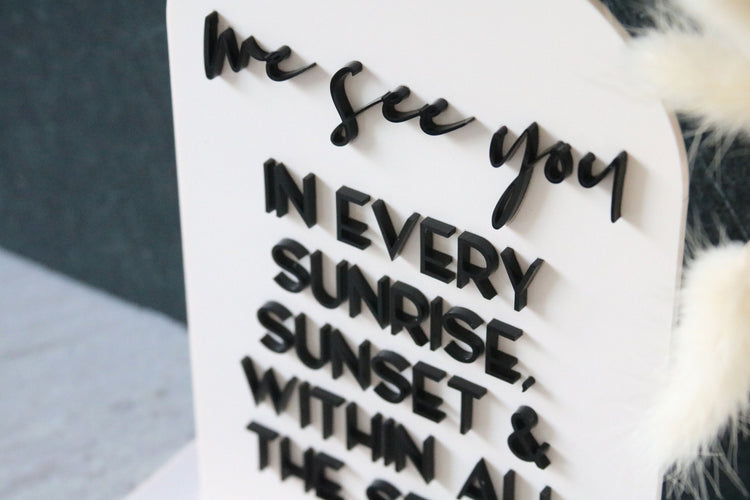 we see you
IN EVERY
SUNRISE,
SUNSET &
WITHIN ALL
THE